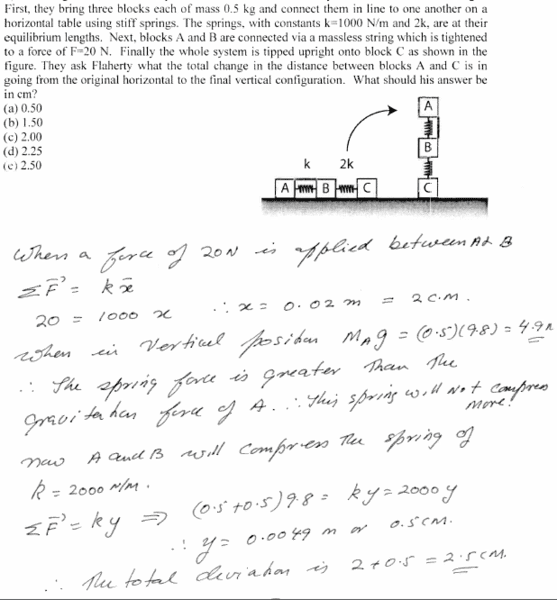 First, they bring three blocks each of mass 0.5 kg and connect them in line to one another on a
horizontal table using stiff springs. The springs, with constants k=1000 N/m and 2k, are at their
equilibrium lengths. Next, blocks A and B are connected via a massless string which is tightened
to a force of F=20 N. Finally the whole system is tipped upright onto block C as shown in the
figure. They ask Flaherty what the total change in the distance between blocks A and C is in
going from the original horizontal to the final vertical configuration. What should his answer be
in cm?
(a) 0.50
(b) 1.50
(c) 2.00
(d) 2.25
(e) 2.50
A
B
C
k 2k
A B C
When a force of 20N is applied between A & B
ΣF⃗ = kx⃗
20 = 1000 x ∴ x = 0.02 m = 2 c.m.
when in vertical position MAg = (0.5)(9.8) = 4.9N
∴ The spring force is greater than the
gravitation force of A. ∴ This spring will not compress
more!
now A and B will compress the spring of
k = 2000 N/m.
ΣF⃗ = ky ⇒ (0.5+0.5)9.8 = ky = 2000y
∴ y = 0.0049 m or 0.5 cm.
∴ The total deviation is 2+0.5 = 2.5 cm.